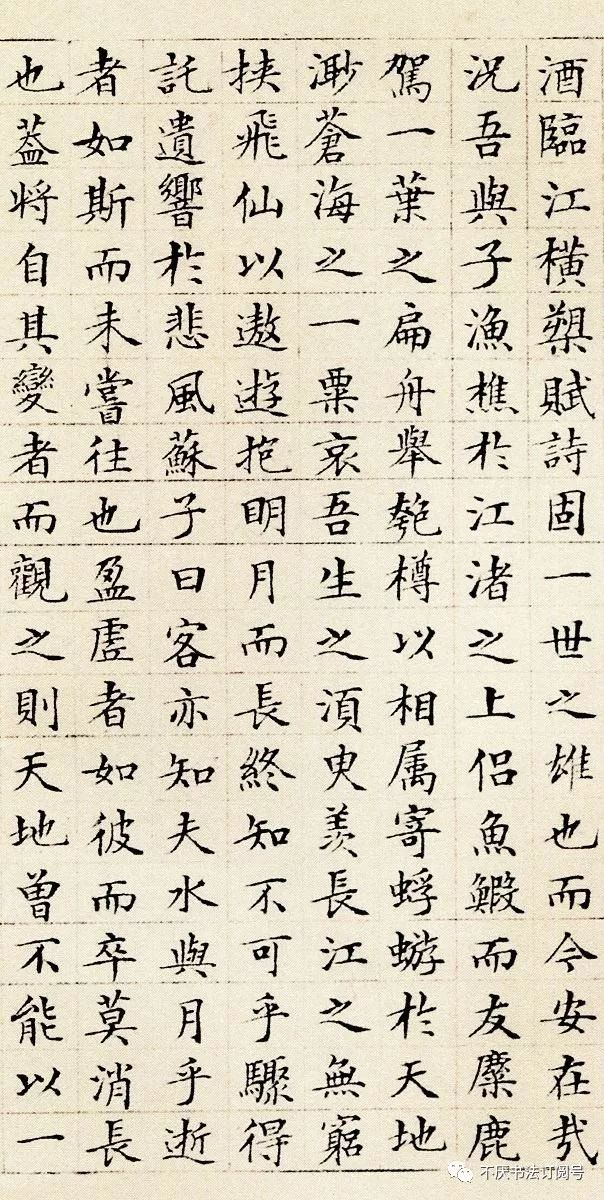 酒臨江橫槊賦詩固一世之雄也而今安在哉
況吾與子漁樵於江渚之上侶魚鰕而友麋鹿
駕一葉之扁舟舉匏樽以相属寄蜉蝣於天地
渺蒼海之一粟哀吾生之須臾羨長江之無窮
挾飛仙以遨遊抱明月而長終知不可乎驟得
託遺響於悲風蘇子曰客亦知夫水與月乎逝
者如斯而未嘗往也盈虛者如彼而卒莫消長
也葢將自其變者而觀之則天地曾不能以一
不厌书法订阅号